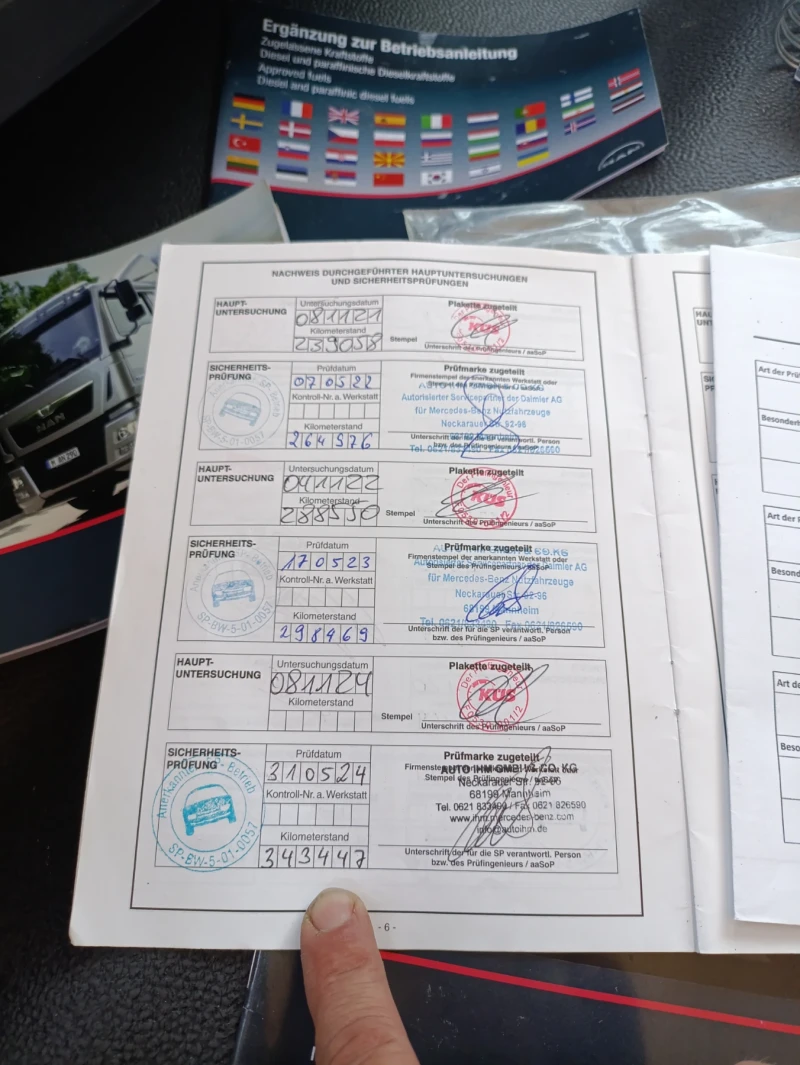 Ergänzung zur Betriebsanleitung
Zugelassene Kraftstoffe
Diesel und paraffinische Dieselkraftstoffe
Approved fuels
Diesel and paraffinic diesel fuels
MAN
NACHWEIS DURCHGEFÜHRTER HAUPTUNTERSUCHUNGEN
UND SICHERHEITSPRÜFUNGEN
HAUPT-
UNTERSUCHUNG
Untersuchungsdatum
081121
Kilometerstand
239058
Stempel
Plakette zugeteilt
KÜS
Unterschrift des Prüfingenieurs / aaSoP
SICHERHEITS-
PRÜFUNG
SP-BW-5-01-0057
Prüfdatum
070522
Kontroll-Nr. a. Werkstatt
Kilometerstand
264576
Prüfmarke zugeteilt
Firmenstempel der anerkannten Werkstatt oder
Autorisierter Servicepartner der Daimler AG
für Mercedes-Benz Nutzfahrzeuge
Neckarauer Str. 92-96
Unterschrift der für die SP verantwortl. Person
bzw. des Prüfingenieurs / aaSoP
HAUPT-
UNTERSUCHUNG
Untersuchungsdatum
041122
Kilometerstand
288550
Stempel
Plakette zugeteilt
KÜS
Unterschrift des Prüfingenieurs / aaSoP
SICHERHEITS-
PRÜFUNG
SP-BW-5-01-0057
Prüfdatum
170523
Kontroll-Nr. a. Werkstatt
Kilometerstand
298969
Prüfmarke zugeteilt
Firmenstempel der anerkannten Werkstatt oder
für Mercedes-Benz Nutzfahrzeuge
Neckarauer Str. 92-96
68199 Mannheim
Unterschrift der für die SP verantwortl. Person
bzw. des Prüfingenieurs / aaSoP
HAUPT-
UNTERSUCHUNG
Untersuchungsdatum
081124
Kilometerstand
Stempel
Plakette zugeteilt
KÜS
Unterschrift des Prüfingenieurs / aaSoP
SICHERHEITS-
PRÜFUNG
Anerkannter SP-Betrieb
SP-BW-5-01-0057
Prüfdatum
310524
Kontroll-Nr. a. Werkstatt
Kilometerstand
343447
Prüfmarke zugeteilt
AUTO IHM GMBH & CO. KG
Neckarauer Str. 92-96
68199 Mannheim
Tel. 0621 832499 / Fax 0621 826590
www.ihm.mercedes-benz.com
info@autoihm.de
Unterschrift der für die SP verantwortl. Person
bzw. des Prüfingenieurs / aaSoP
- 6 -
Art der Prü
Besondert
Art der P
Besond
Art de
Beso
MAN